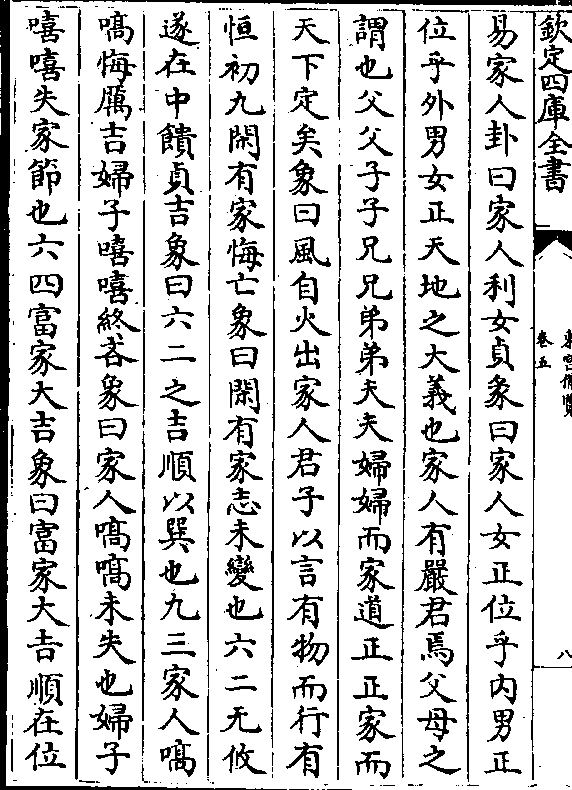 欽定四庫全書
卷五
八
易家人卦曰家人利女貞彖曰家人女正位乎内男正
位乎外男女正天地之大義也家人有嚴君焉父母之
謂也父父子子兄兄弟弟夫夫婦婦而家道正正家而
天下定矣象曰風自火出家人君子以言有物而行有
恒初九閑有家悔亡象曰閑有家志未變也六二无攸
遂在中饋貞吉象曰六二之吉順以巽也九三家人嗃
嗃悔厲吉婦子嘻嘻終吝象曰家人嗃嗃未失也婦子
嘻嘻失家節也六四富家大吉象曰富家大吉順在位